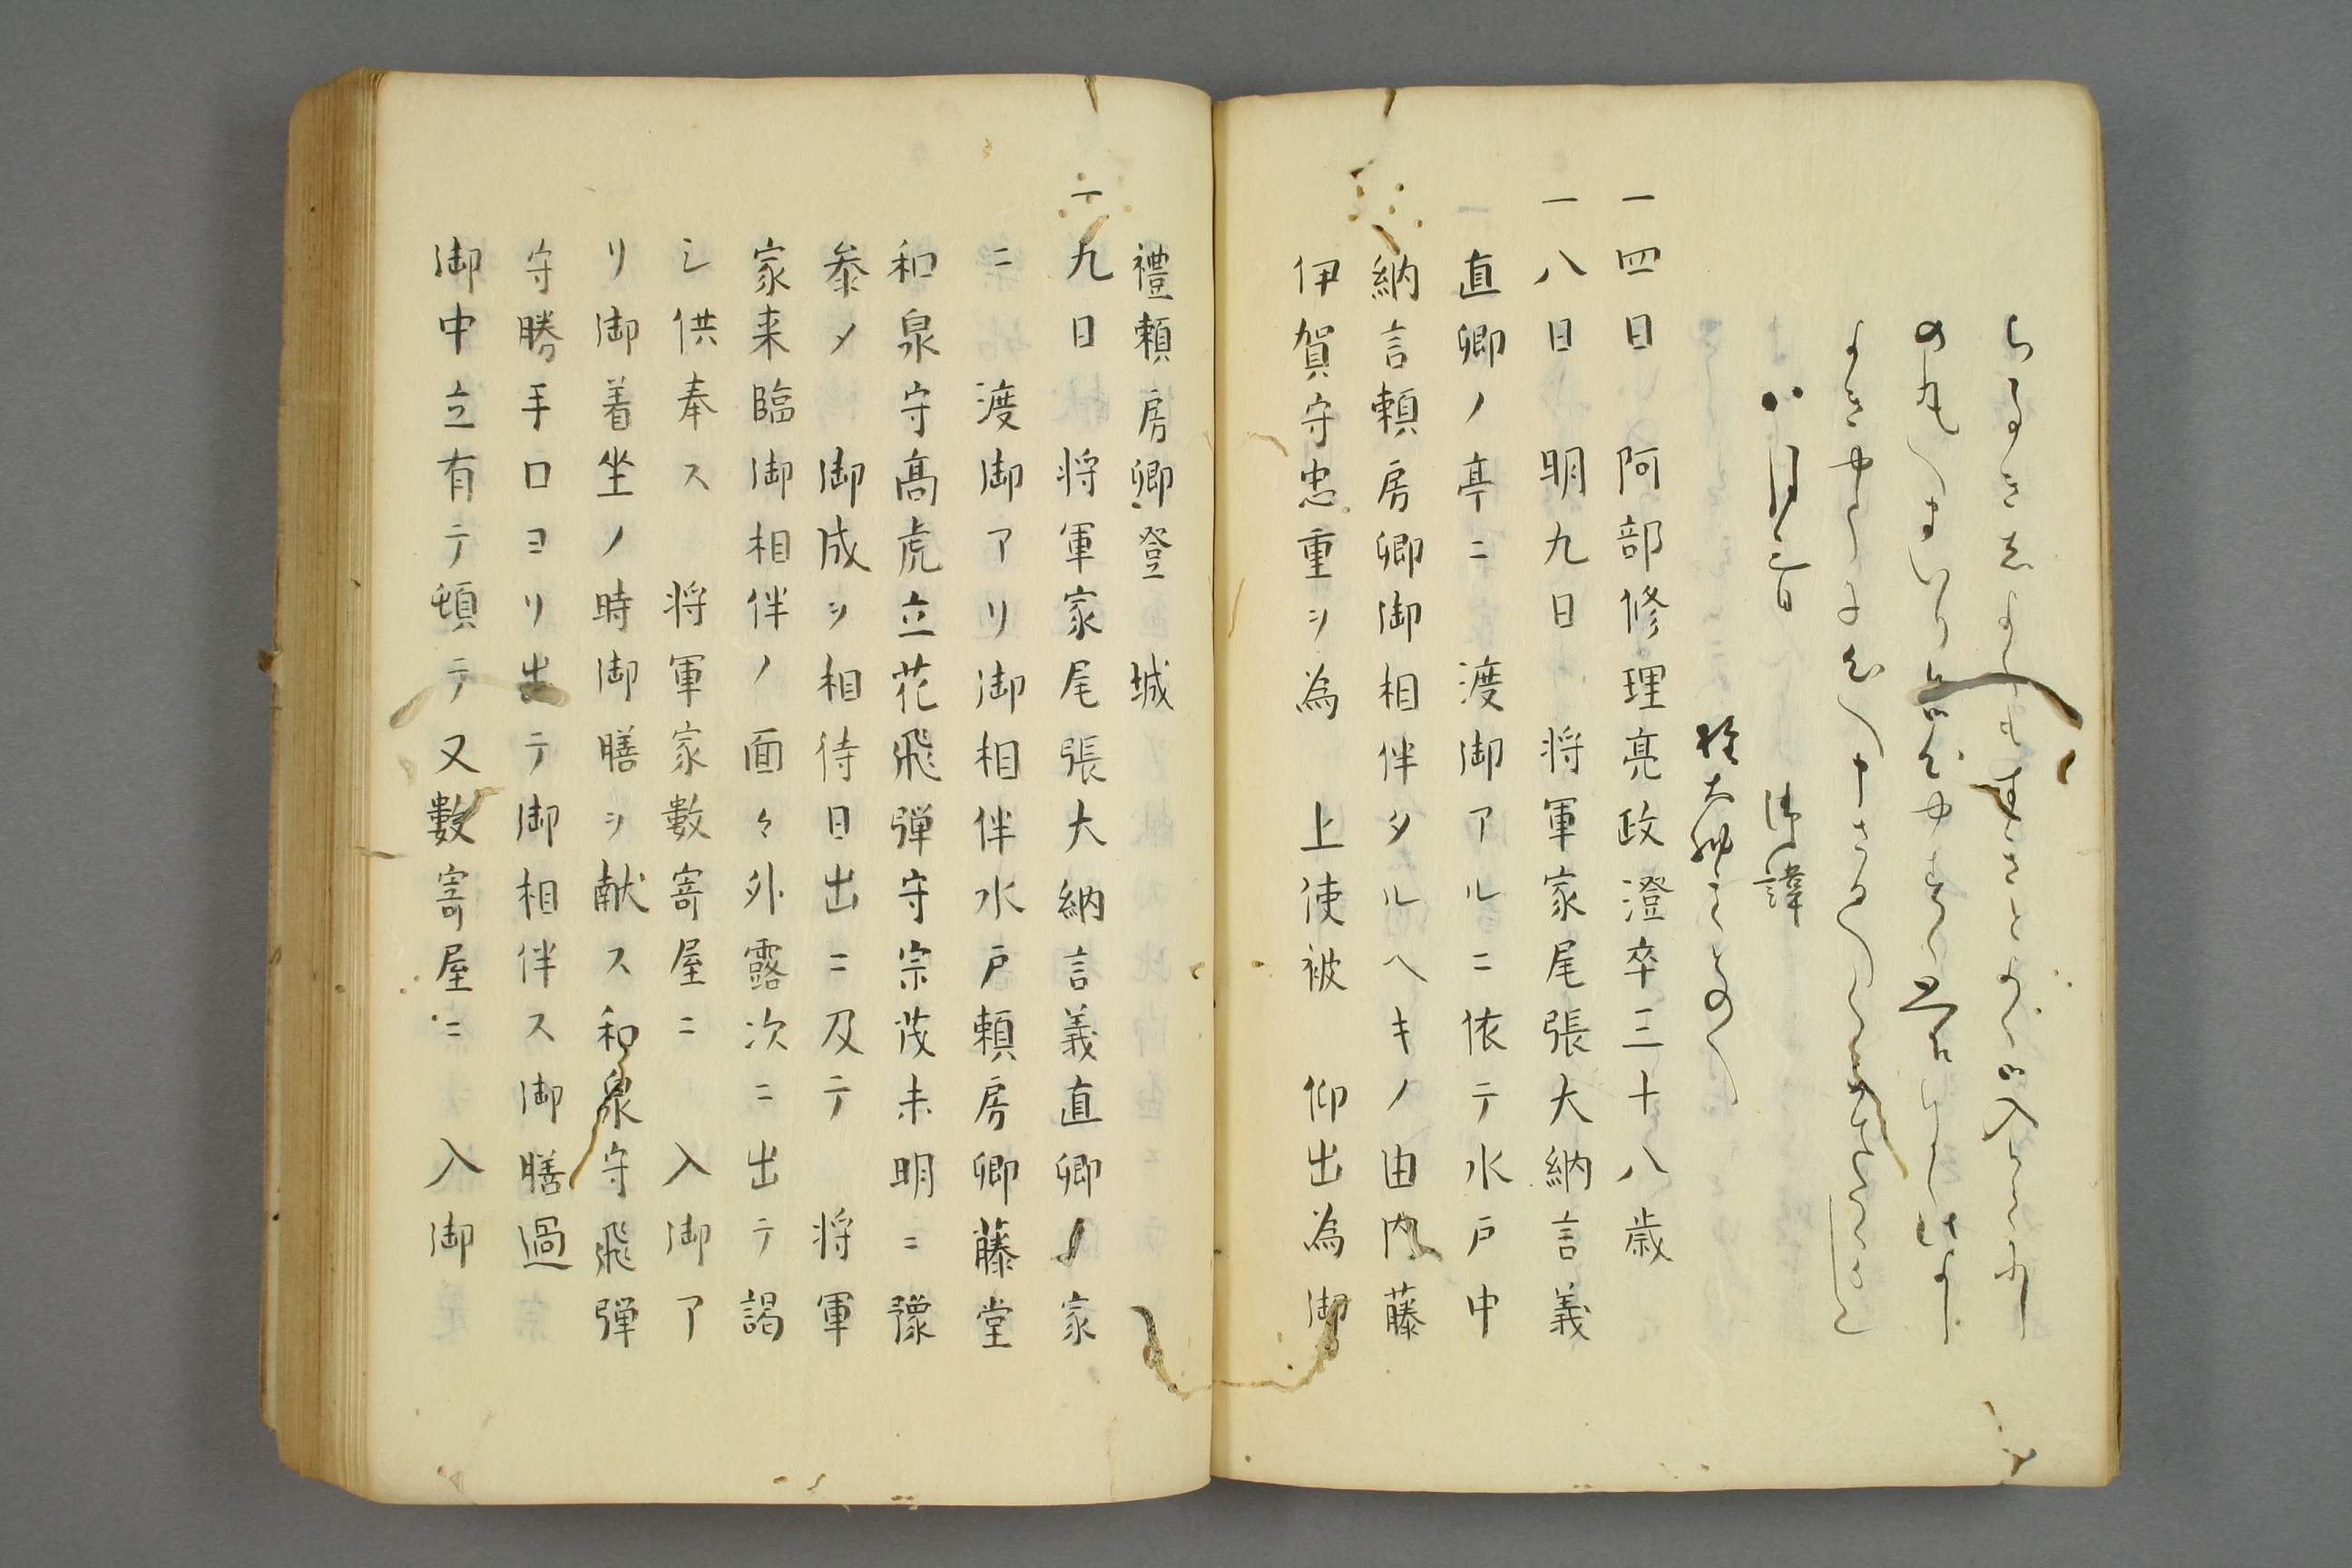 八月三日
御諱
権大納言とのへ
一四日　阿部修理亮政澄卒三十八歳
一八日　明九日　将軍家尾張大納言義
直卿ノ亭ニ　渡御アルニ依テ水戸中
納言頼房卿御相伴タルヘキノ由内藤
伊賀守忠重ヲ為　上使被　仰出為御
禮頼房卿登　城
一九日　将軍家尾張大納言義直卿ノ家
ニ　渡御アリ御相伴水戸頼房卿藤堂
和泉守高虎立花飛弾守宗茂未明ニ豫
参メ　御成ヲ相待日出ニ及テ　将軍
家来臨御相伴ノ面々外露次ニ出テ謁
シ供奉ス　将軍家數寄屋ニ　入御ア
リ御着坐ノ時御膳ヲ献ス和泉守飛弾
守勝手口ヨリ出テ御相伴ス御膳過
御中立有テ頓テ又數寄屋ニ　入御